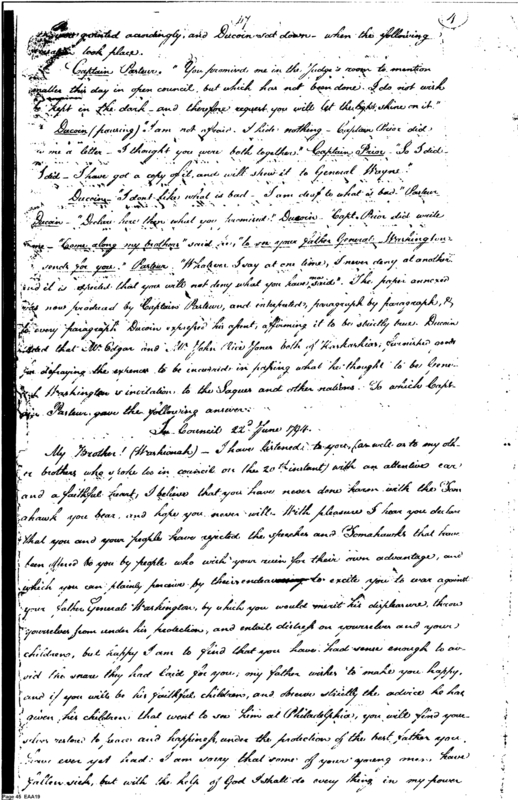 17
4
pointed accordingly, and Ducoin sat down - when the following
took place.
Captain Pasteur. "You promised me in the Judge's room to mention
matter this day in open council, but which has not been done. I do not wish
to kept in the dark - and therefore request you will let the light shine on it."
Ducoin (pausing) "I am not afraid - I hide nothing - Captain Prior did
me a letter - I thought you were both together." Captain Prior "So I did -
I did - I have got a copy of it, and will shew it to General Wayne"
Ducoin. "I dont like what is bad - I am deaf to what is bad." Pasteur
Ducoin - "Declare here then what you promised" Ducoin - Capt. Prior did write
me - "Come along my brothers" said he, "to see your father General Washington
sends for you." Pasteur "Whatever I say at one time, I never deny at another
and it is expected that you will not deny what you have said". The paper annexed
was now produced by Captain Pasteur, and interpreted, paragraph by paragraph, &
to every paragraph Ducoin expressed his assent, affirming it to be strictly true. Ducoin
added that Mr. Edgar and Mr. John Rice Jones both of Kaskaskias, furnished goods
for defraying the expences to be incurred in passing what he thought to be Gene-
ral Washington's invitation to the Saques and other nations. To which Capt-
ain Pasteur gave the following answer.
In Council 22d June 1794.
My Brother! - I have listened to you, (as well as to my oth-
er brothers who spoke to us in council on the 20th instant) with an attentive ear
and a faithful heart, I believe that you have never done harm with the Tom
ahawk you bear, and hope you never will. With pleasure I hear you declare
that you and your people have rejected the speeches and Tomahawks that have
been offered to you by people who wish your ruin for their own advantage, and
which you can plainly perceive by their endeavoring to excite you to war against
your father General Washington, by which you would merit his displeasure, throw
yourselves from under his protection, and entail distress on yourselves and your
children, but happy I am to find that you have had sense enough to av-
oid the snare they had laid for you, my father wishes to make you happy,
and if you will be his faithful children, and observe strictly the advice he has
given his children that went to see him at Philadelphia, you will find your-
selves restored to peace and happiness, under the protection of the best father you
have ever yet had: I am sorry that some of your young men have
fallen sick, but with the help of God I shall do every thing in my power
Page 46 EAA19